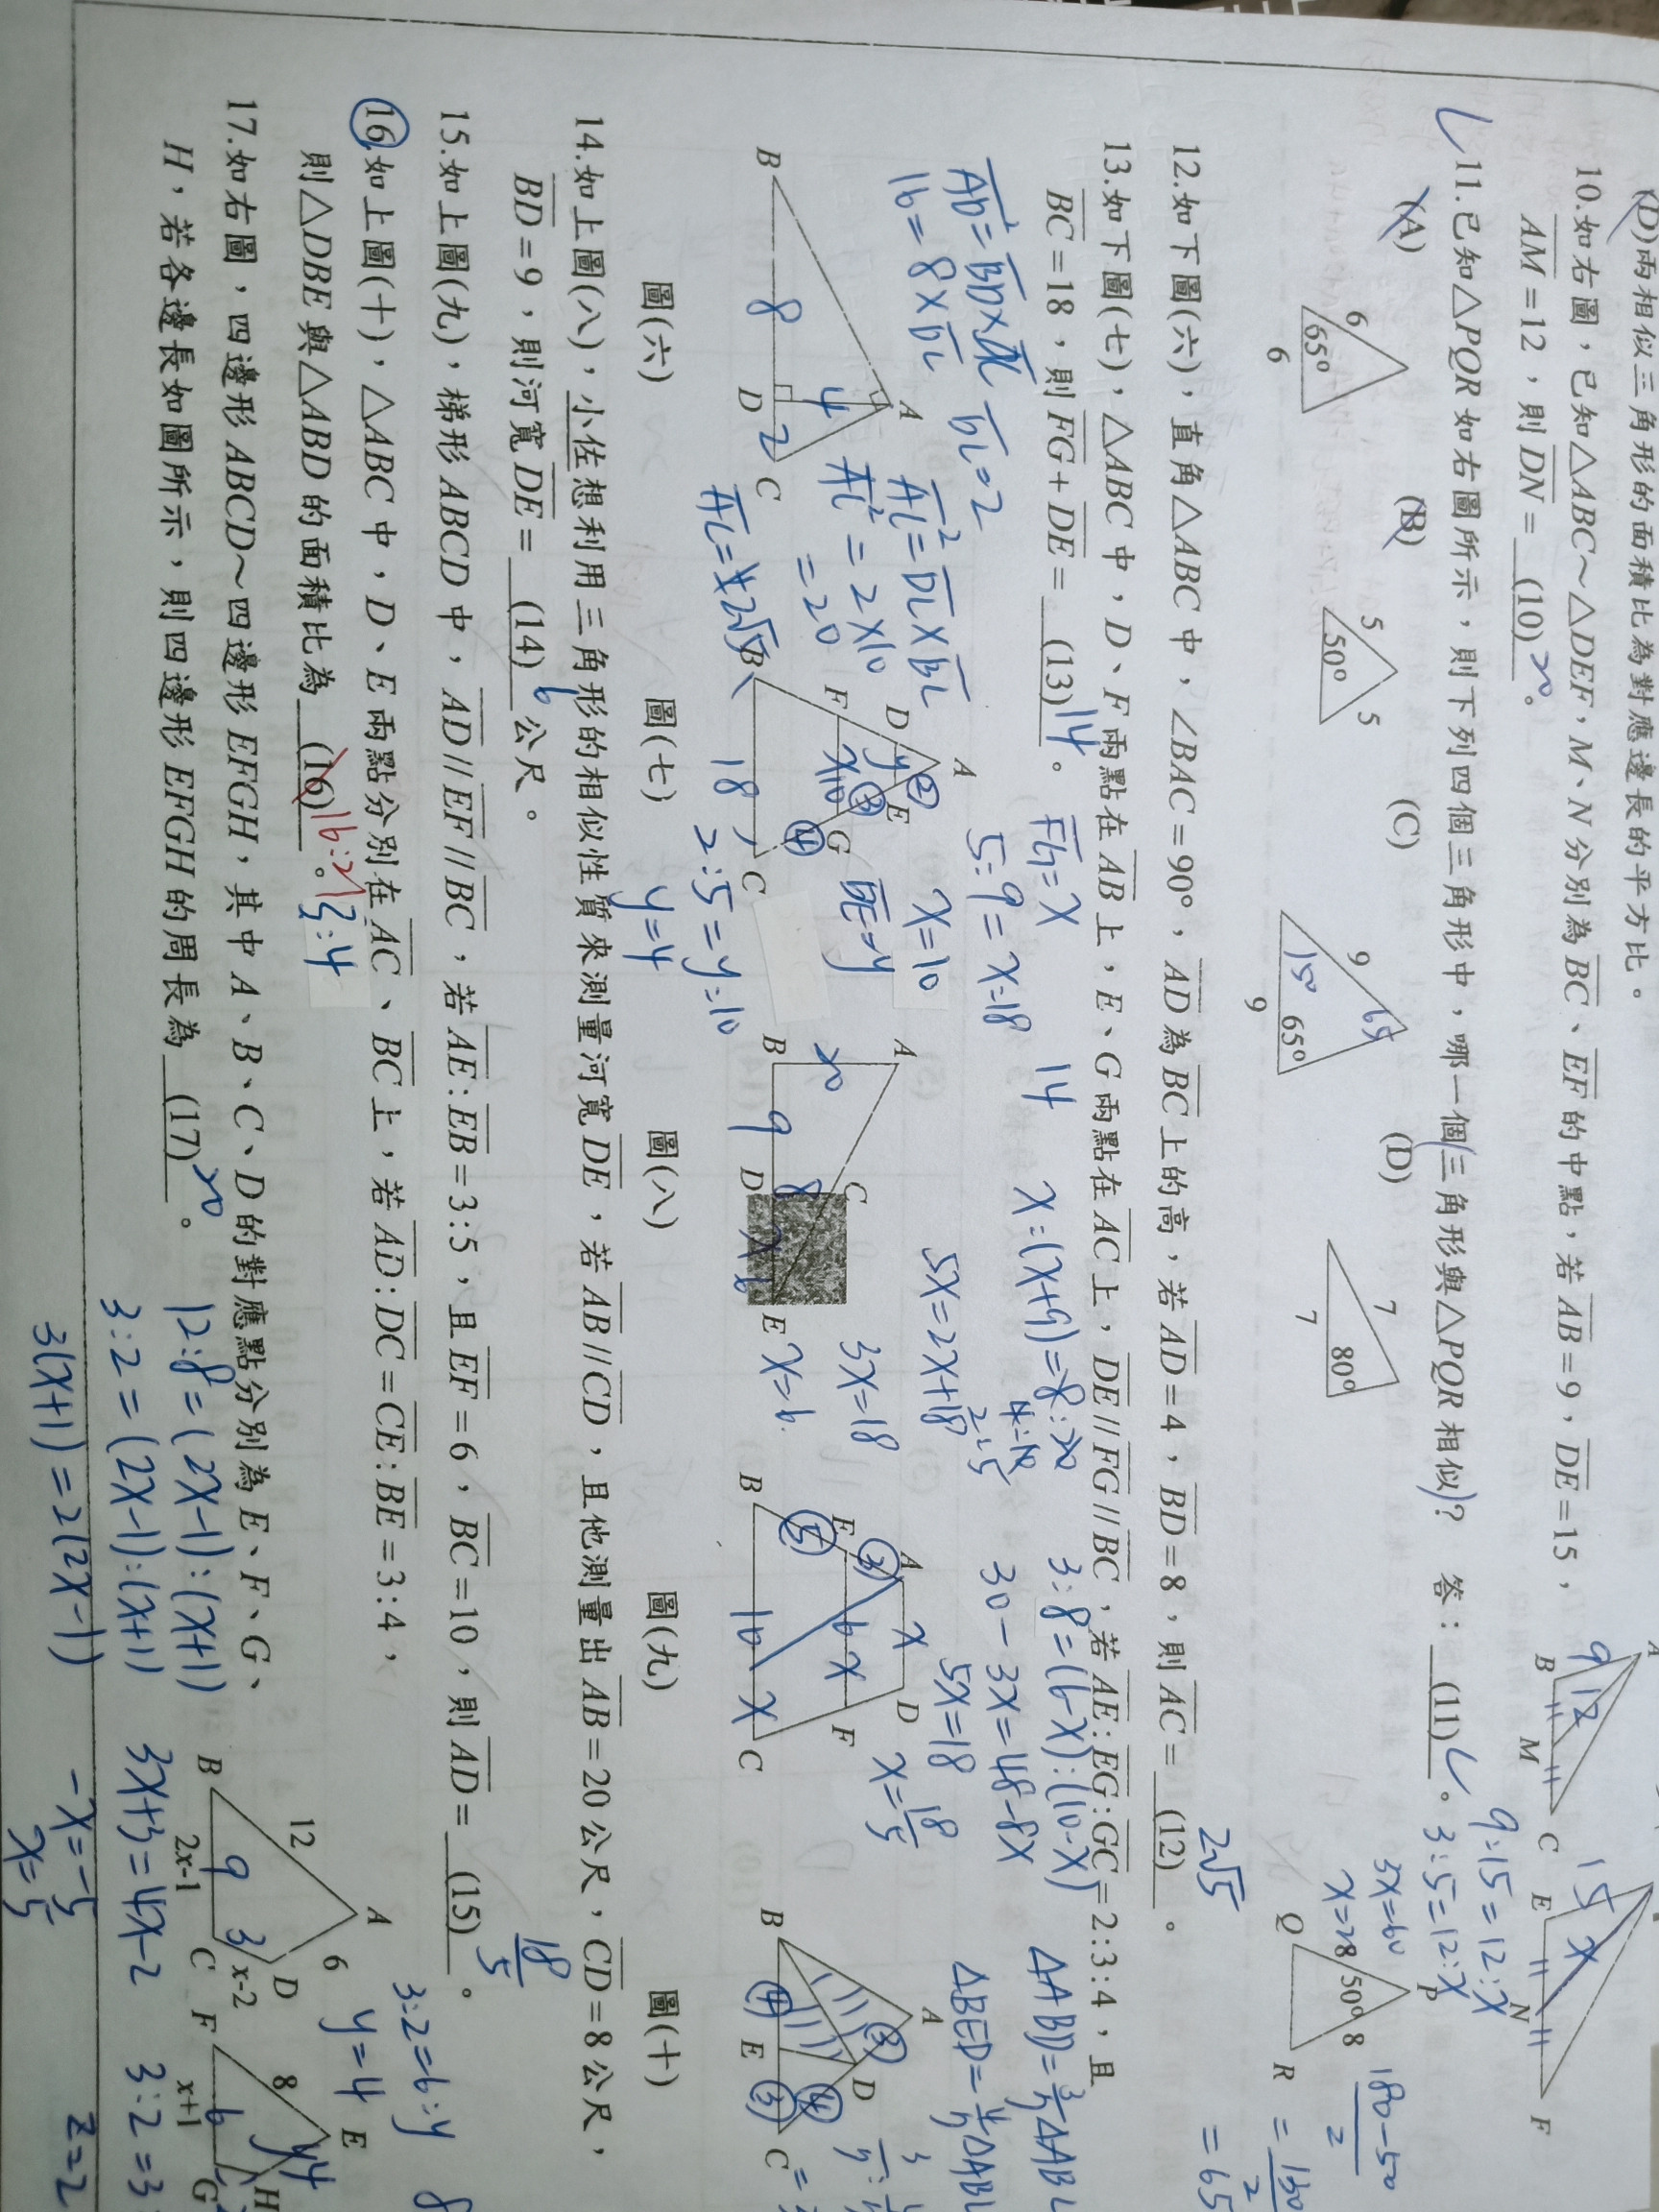 (D)兩相似三角形的面積比為對應邊長的平方比。
10.如右圖，已知△ABC～△DEF，M、N分別為BC、EF的中點，若AB=9，DE=15，
AM=12，則DN=(10)20。
11.已知△PQR如右圖所示，則下列四個三角形中，哪一個三角形與△PQR相似？ 答：(11)C。
(A) (B) (C) (D)
6 65° 6
5 50° 5
9 50° 65 65° 9
7 80° 7
A 9 12 B M C
15 x E N F
9:15=12:x
3:5=12:x
3x=60
x=20
P 8 50° 8 Q R
180-50
2
=130
2
=65
12.如下圖(六)，直角△ABC中，∠BAC=90°，AD為BC上的高，若AD=4，BD=8，則AC=(12)2√5。
13.如下圖(七)，△ABC中，D、F兩點在AB上，E、G兩點在AC上，DE//FG//BC，若AE:EG:GC=2:3:4，且
BC=18，則FG+DE=(13)14。
AD²=BD×DC
16=8×DC
DC=2
AC²=DC×BC
AC²=2×10
=20
FG=x
5:9=x:18
x=10
DE=y
2:5=y:10
y=4
14
x:(x+9)=8:20
4:10
2:5
5x=2x+18
3x=18
x=6
3:8=(6-x):(10-x)
30-3x=48-8x
5x=18
x=18/5
B 8 D 2 C 4 A
B F D A y ② E x10 ③ G ④ 18 C
A 20 B 9 D 8 C x 6 E
A ③ E ⑤ B x D 6 x F 10 x C
A ③ D ④ B ④ E ③ C
圖(六) 圖(七) 圖(八) 圖(九) 圖(十)
14.如上圖(八)，小佐想利用三角形的相似性質來測量河寬DE，若AB//CD，且他測量出AB=20公尺，CD=8公尺，
BD=9，則河寬DE=(14)6公尺。
15.如上圖(九)，梯形ABCD中，AD//EF//BC，若AE:EB=3:5，且EF=6，BC=10，則AD=(15)18/5。
16.如上圖(十)，△ABC中，D、E兩點分別在AC、BC上，若AD:DC=CE:BE=3:4，
則△DBE與△ABD的面積比為(16)16:21。
17.如右圖，四邊形ABCD～四邊形EFGH，其中A、B、C、D的對應點分別為E、F、G、
H，若各邊長如圖所示，則四邊形EFGH的周長為(17)20。
12:8=(2x-1):(x+1)
3:2=(2x-1):(x+1)
3(x+1)=2(2x-1)
3x+3=4x-2
-x=-5
x=5
3:2=6:y
y=4
z=2
A 12 6 B 9 2x-1 C 3 x-2 D
E 8 y4 F 6 x+1 G H